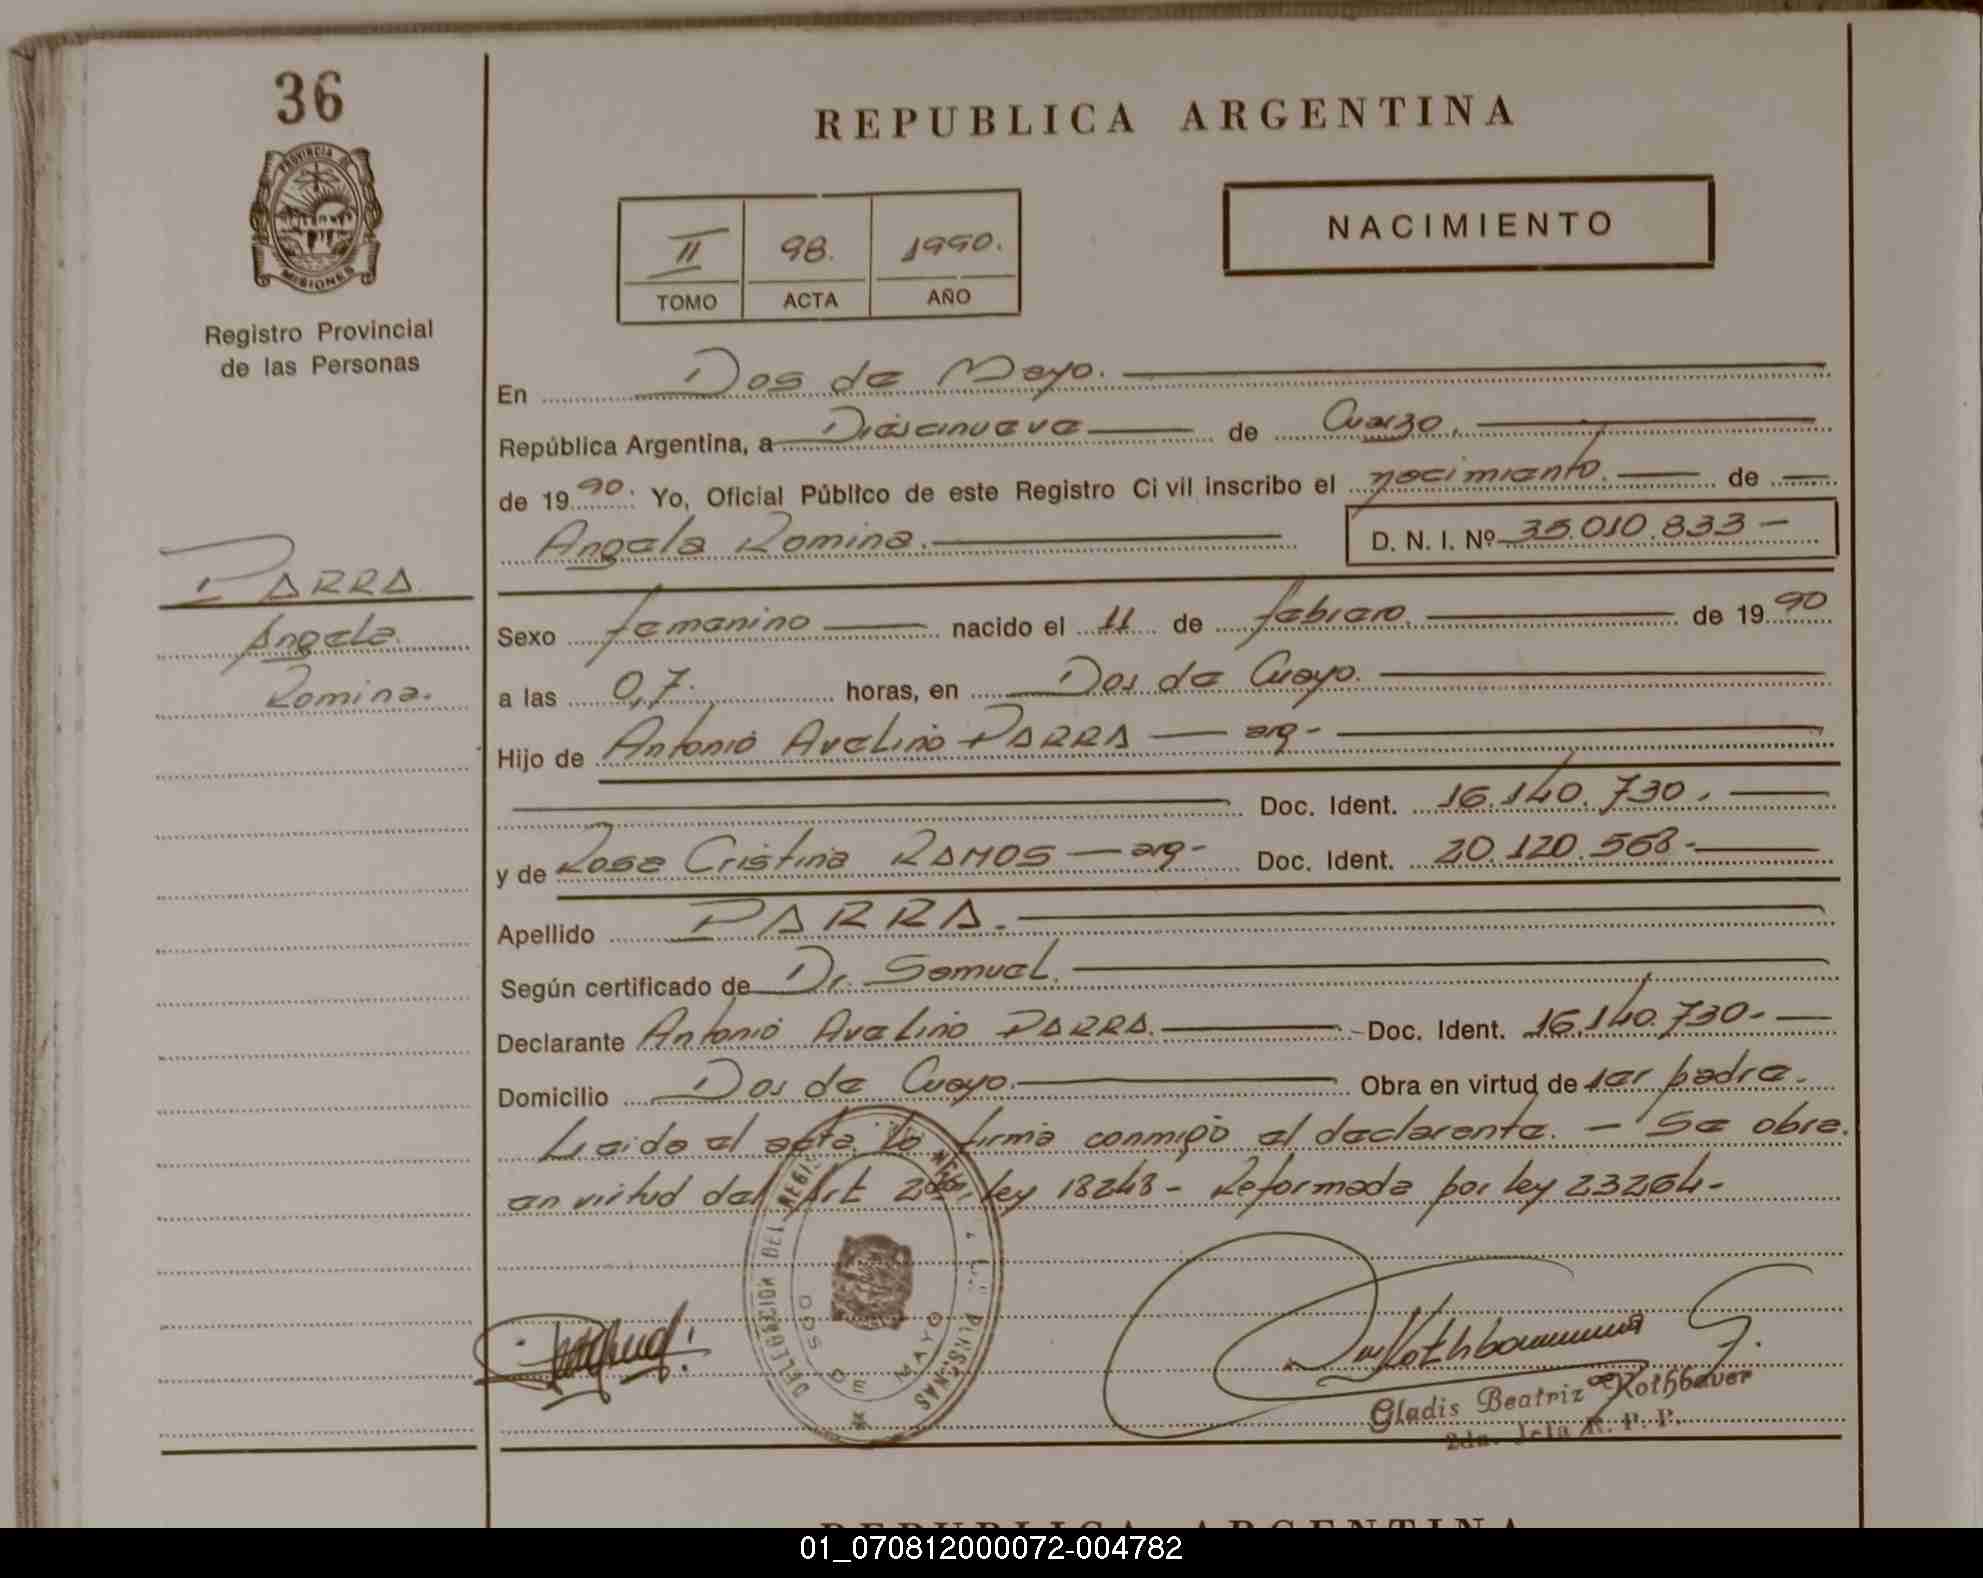 36
PROVINCIA DE
MISIONES
Registro Provincial
de las Personas
REPUBLICA ARGENTINA
II 98. 1990.
TOMO ACTA AÑO
NACIMIENTO
En Dos de Mayo.
República Argentina, a Diecinueve de Marzo.
de 1990. Yo, Oficial Público de este Registro Civil inscribo el nacimiento. de
Angela Romina. D. N. I. Nº 35.010.833
PARRA
Angela
Romina.
Sexo femenino nacido el 11 de febrero. de 1990
a las 0,7. horas, en Dos de Mayo.
Hijo de Antonio Avelino PARRA — arg-
Doc. Ident. 16.140.730.
y de Rosa Cristina RAMOS — arg- Doc. Ident. 20.120.568.-
Apellido PARRA.
Según certificado de Dr. Samuel.
Declarante Antonio Avelino PARRA. Doc. Ident. 16.140.730-
Domicilio Dos de Mayo. Obra en virtud de ser padre.
Leida el acta, la firma conmigo el declarante. - Se obra.
en virtud del Art 2do, ley 18248 - Reformada por ley 23264-
DELEGACION DEL REGIS PERSONAS
DOS DE MAYO
Gladis Beatriz de Rothbauer
2da. Jefa R. P. P.
REPUBLICA ARGENTINA
01_070812000072-004782